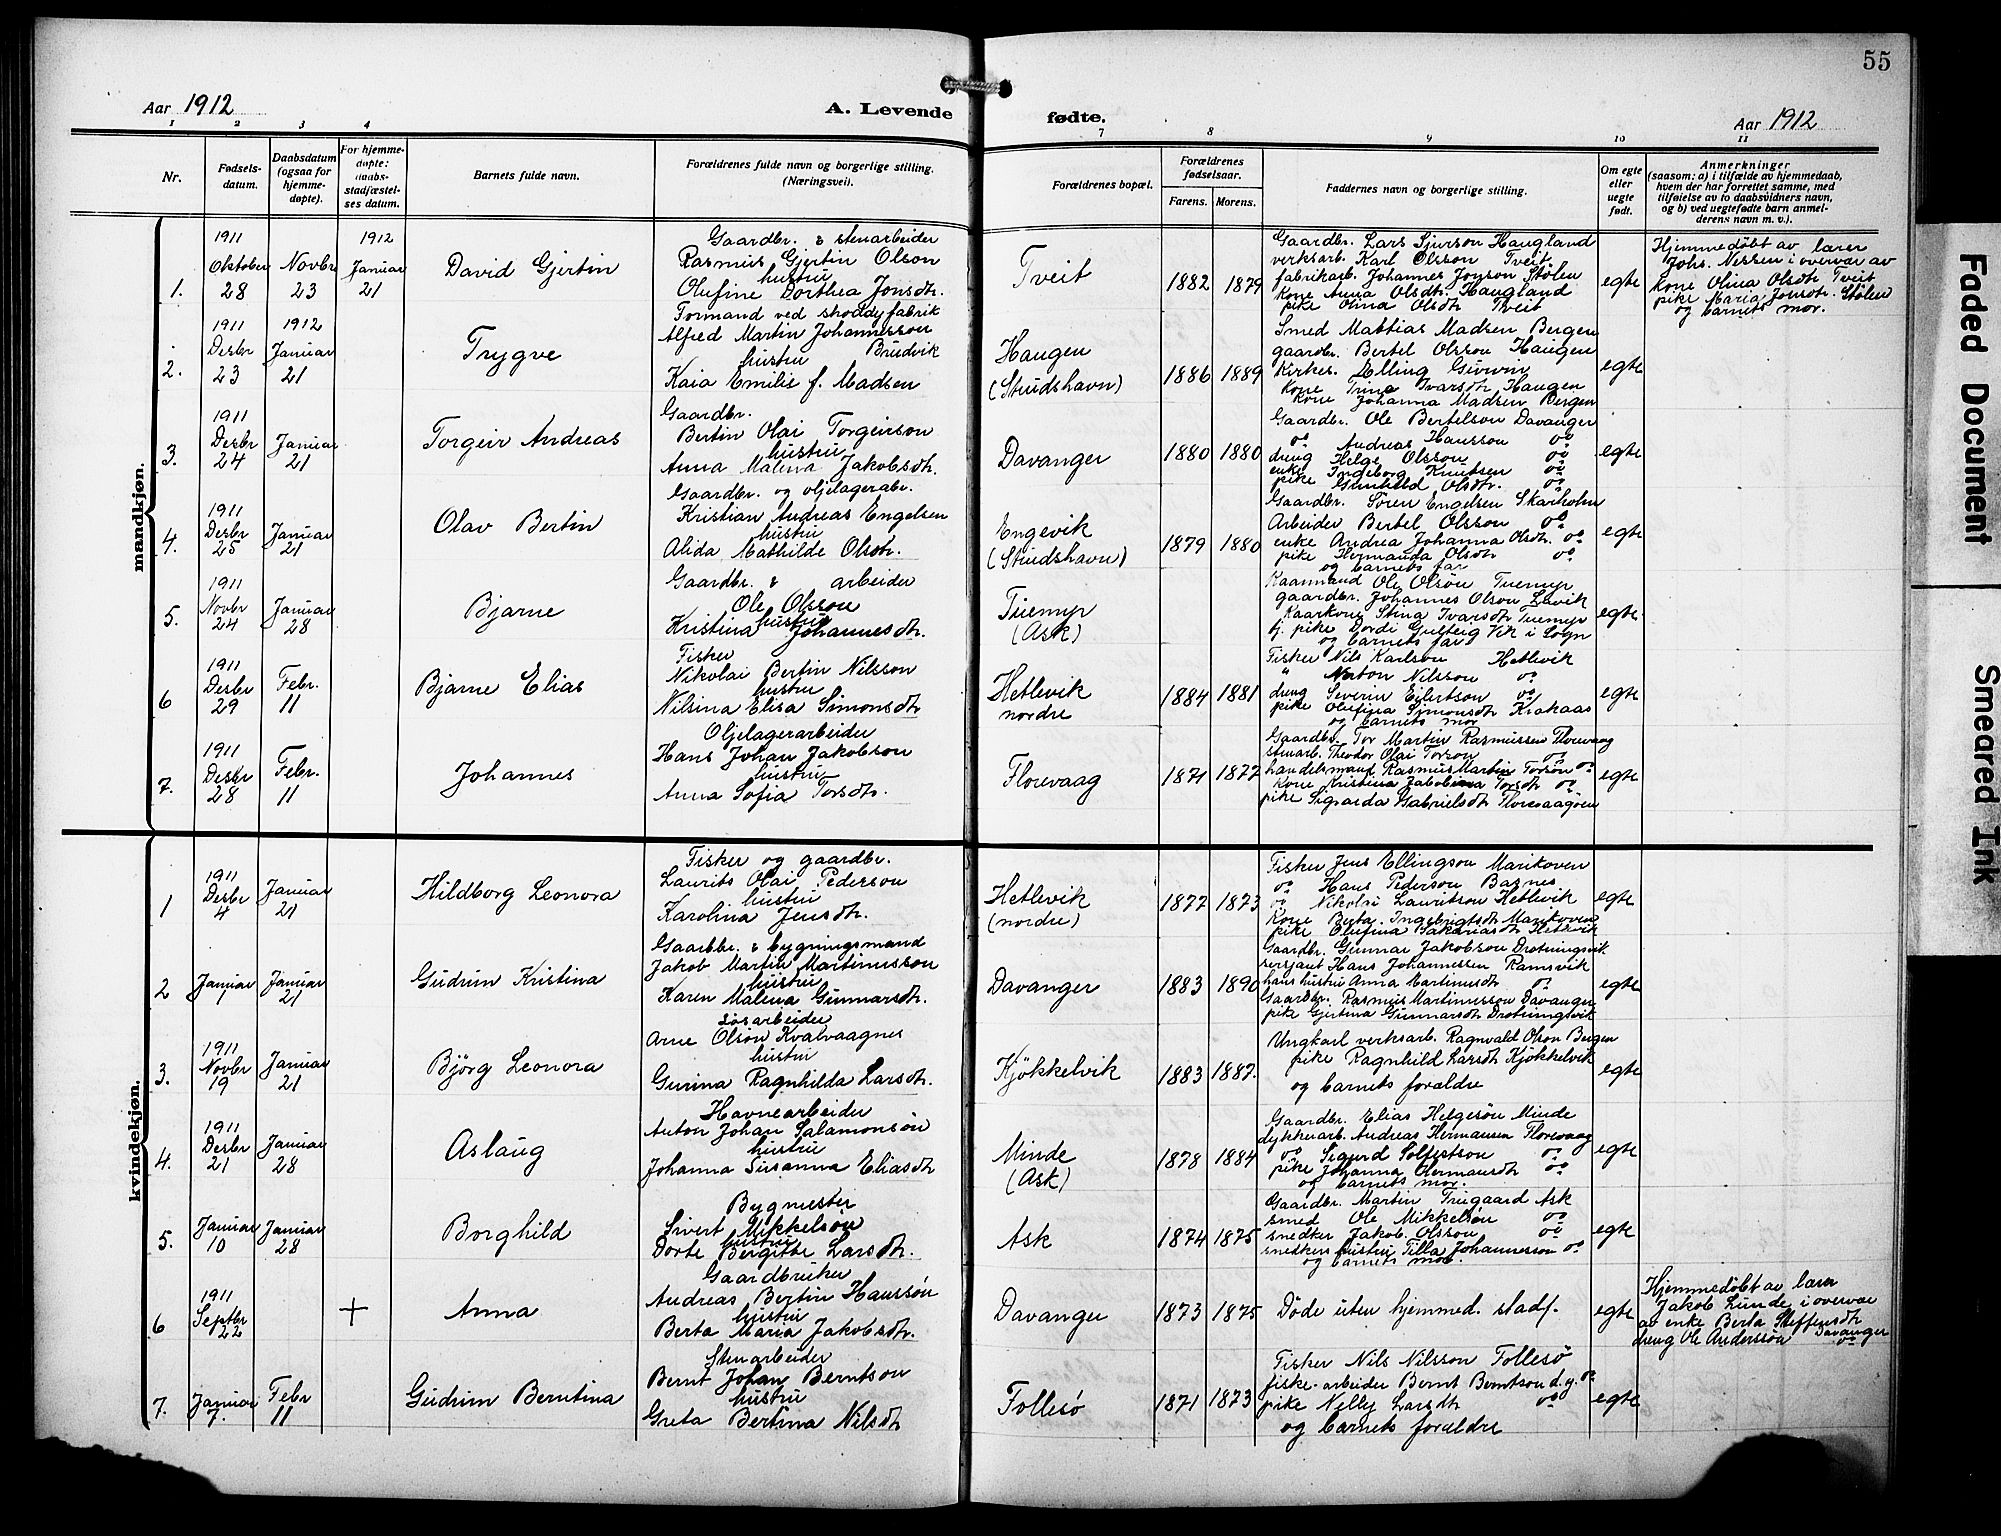 55
Aar 1912
A. Levende fødte.
Aar 1912
1 2 3 4 7 8 9 10 11
Nr.
Fødsels-
datum.
Daabsdatum
(ogsaa for
hjemme-
døpte).
For hjemme-
døpte:
daabs-
stadfæstel-
ses datum.
Barnets fulde navn.
Forældrenes fulde navn og borgerlige stilling.
(Næringsvei).
Forældrenes bopæl.
Forældrenes
fødselsaar.
Farens. Morens.
Faddernes navn og borgerlige stilling.
Om egte
eller
uegte
født.
Anmerkninger
(saasom: a) i tilfælde av hjemmedaab,
hvem der har forrettet samme, med
tilføielse av to daabsvidners navn,
og b) ved uegtefødte barn anmel-
derens navn m. v.).
mandkjøn.
1.
1911
Oktober
28
Novbr
23
1912
Januar
21
David Gjertin
Gaardbr. & stenarbeider
Rasmus Gjertin Olson
hustru
Olufine Dorthea Jonsdtr.
Tveit
1882 1879
Gaardbr. Lars Sjurson Haugland
verksarb. Karl Olsson Tveit
fabrikarb. Johannes Jonson Stölen
kone Anna Olsdtr. Haugland
pike Olina Olsdtr Tveit
egte
Hjemmedöbt av lærer
Johs. Nissen i overvær av
kone Olina Olsdtr Tveit
pike Maria Jonsdtr. Stölen
og barnets mor.
2.
1911
Desbr
23
1912
Januar
21
Trygve
Formand ved shoddyfabrik
Alfred Martin Johannesson
hustru Brudvik
Kaia Emilie f. Madsen
Haugen
(Strudshavn)
1886 1889
Smed Mattias Madsen Bergen
gaardbr. Bertel Olsson Haugen
Kirkes. Elling Givrin
kone Trine Ivarsdtr Haugen
kone Johanna Madsen Bergen
egte
3.
1911
Desbr
24
Januar
21
Torgeir Andreas
Gaardbr.
Bertin Olai Torgeirson
hustru
Anna Malena Jakobsdtr.
Davanger
1880 1880
Gaardbr. Ole Bertelson Davanger
do Andreas Hansson do
dreng Helge Olsson do
enke Ingeborg Knutsen do
pike Gunhild Olsdtr. do
egte
4.
1911
Desbr
25
Januar
21
Olav Bertin
Gaardbr. og oljelagerabr.
Kristian Andreas Engelsen
hustru
Alida Mathilde Olsdtr.
Engevik
(Strudshavn)
1879 1880
Gaardbr. Sören Engelsen Skarholm
Arbeider Bertel Olsson do
enke Andrea Johanna Olsdtr. do
pike Hermanda Olsdtr do
og barnets far
egte
5.
1911
Novbr
24
Januar
28
Bjarne
Gaardbr. & arbeider
Ole Olsson
hustru
Kristina Johannesdtr.
Tuemyr
(Ask)
1871 1872
Kaarmand Ole Olsön Tuemyr
gaardbr. Johannes Olson Lavik
Kaarkone Stina Ivarsdtr Tuemyr
tj. pike Dordi Gulteig Vik i Sogn
og barnets far
egte
6
1911
Desbr
29
Febr.
11
Bjarne Elias
Fisker
Nikolai Bertin Nilsson
hustru
Nilsina Elisa Simonsdtr
Hetlevik
nordre
1884 1881
Fisker Nils Karlson Hetlevik
" Norton Nilsson do
dreng Severin Eilertson do
pike Olufina Simonsdtr Krakaas
og barnets mor
egte
7.
1911
Desbr
28
Febr.
11
Johannes
Oljelagerarbeider
Hans Johan Jakobson
hustru
Anna Sofia Torsdtr.
Florevaag
1871 1872
Gaardbr. Tor Martin Rasmussen Florevaag
stenarb. Theodor Olai Torson do
handelsmand Rasmus Martin Torson do
kone Kristina Jakobina Torsdtr do
pike Sigvarda Gabrielsdtr Florevaagöen
egte
kvindekjøn.
1
1911
Desbr
4
Januar
21
Hildborg Leonora
Fisker og gaardbr.
Laurits Olai Pederson
hustru
Karolina Jensdtr.
Hetlevik
(nordre)
1872 1873
Fisker Jens Ellingson Marikoven
do Hans Pederson Basnes
do Nikolai Lauritson Hetlevik
kone Berta Ingebrigtsdtr Marikoven
pike Olufina Sakariasdtr Hetlevik
egte
2
Januar
1
Januar
21
Gudrun Kristina
Gaardbr. & bygningsmand
Jakob Martin Martinusson
hustru
Karen Malena Gunnarsdtr.
Davanger
1883 1890
Gaardbr. Gunnar Jakobson Drotningsvik
sersjant Hans Johannessen Ramsvik
hans hustru Anna Martinusdtr do
Gaardbr. Rasmus Martinusson Davanger
pike Gjertina Gunnarsdtr Drotningsvik
egte
3.
1911
Novbr
19
Januar
21
Björg Leonora
Lösarbeider
Arne Olson Kvalvaagnes
hustru
Gurina Ragnhilda Larsdtr.
Kjökkelvik
1883 1887.
Ungkarl verksarb. Ragnvald Olson Bergen
pike Ragnhild Larsdtr Kjökkelvik
og barnets forældre
egte
4.
1911
Desbr
21
Januar
28
Aslaug
Havnearbeider
Anton Johan Salamonsön
hustru
Johanna Susanna Eliasdtr
Minde
(Ask)
1878 1884
Gaardbr. Elias Helgesön Minde
dykkerarb. Andreas Hermansen Florevaag
do Sigurd Solfestson do
pike Johanna Hermansdtr do
og barnets mor.
egte
5.
Januar
10
Januar
28
Borghild
Bygmester
Sivert Mikkelsön
hustru
Dorte Birgitte Larsdtr.
Ask
1874 1875
Gaardbr. Martin Trugaard Ask
smed Ole Mikkelsön do
snedker Jakob Olsson do
snedkers hustru Tilla Johannesson do
og barnets mor.
egte
6
1911
Septbr
22
+
Anna
Gaardbruker
Andreas Bertin Hansson
hustru
Berta Maria Jakobsdtr.
Davanger
1873 1875
Døde uten hjemmed. stadf.
egte
Hjemmedöbt av lærer
Jakob Lunde i overvær
av enke Berta Steffensdtr
Davanger
dreng Ole Andersson do
7.
Januar
7.
Febr
11
Gudrun Berntina
Stenarbeider
Bernt Johan Berntson
hustru
Greta Bertina Nilsdtr
Follesö
1871 1873
Fisker Nils Nilsson Follesö
fiske-arbeider Bernt Berntson d.y. do
pike Nelly Larsdtr do
og barnets forældre
egte
Faded Document
Smeared Ink